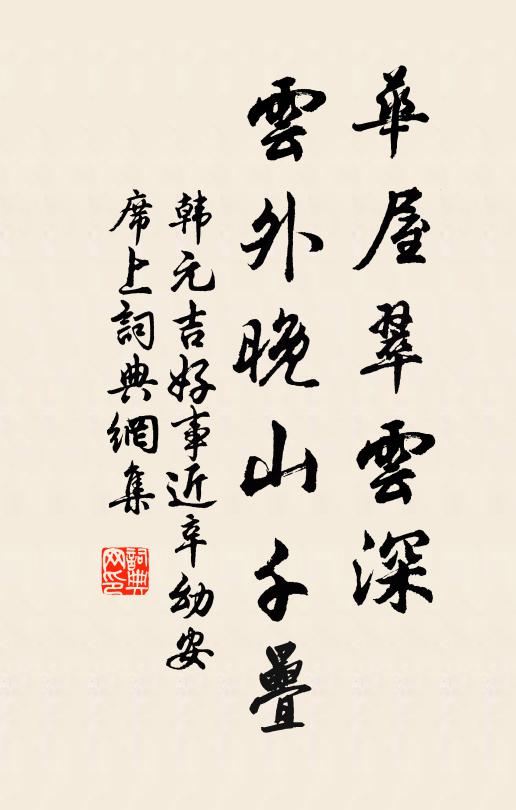 華屋翠雲深
雲外晚山千疊
韩元吉好事近辛幼安
席上詞典網集
詞典
网印